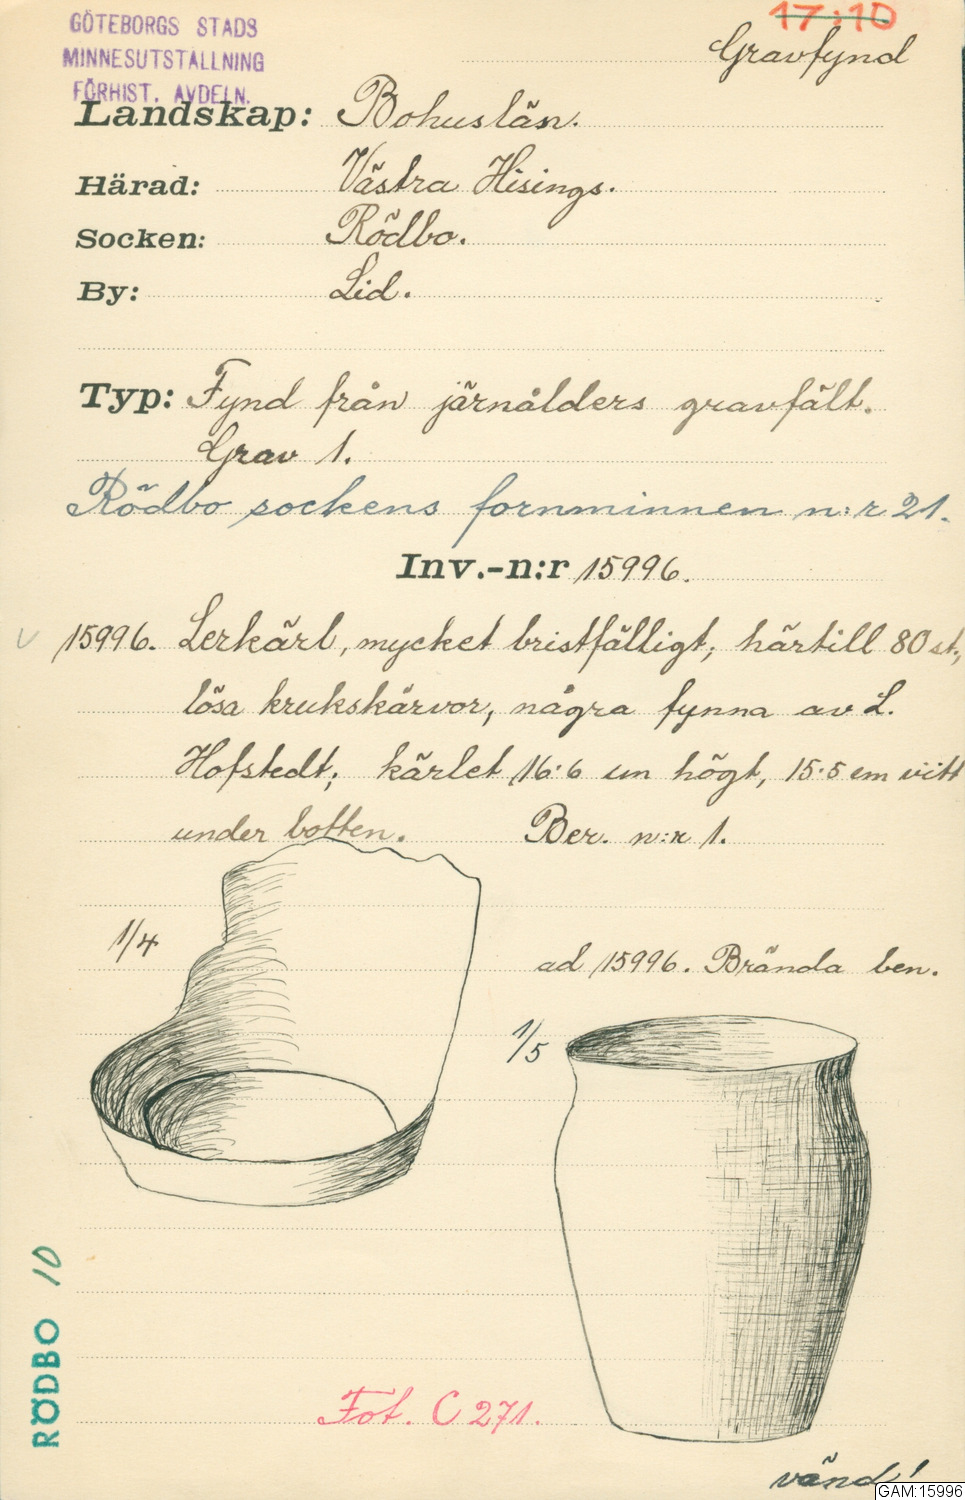 GÖTEBORGS STADS
MINNESUTSTÄLLNING
FÖRHIST. AVDELN.
17:10
Gravfynd
Landskap: Bohuslän.
Härad: Västra Hisings.
Socken: Rödbo.
By: Lid.
Typ: Fynd från järnålders gravfält.
Grav 1.
Rödbo sockens fornminnen n:r 21.
Inv.-n:r 15996.
15996. Lerkärl, mycket bristfälligt; härtill 80 st.,
lösa krukskärvor, några fynna av L.
Hofstedt; kärlet 16·6 cm högt, 15·5 cm vitt
under botten. Ber. n:r 1.
1/4
ad 15996. Brända ben.
1/5
RÖDBO 10
Fot. C 271.
vänd!
GAM:15996